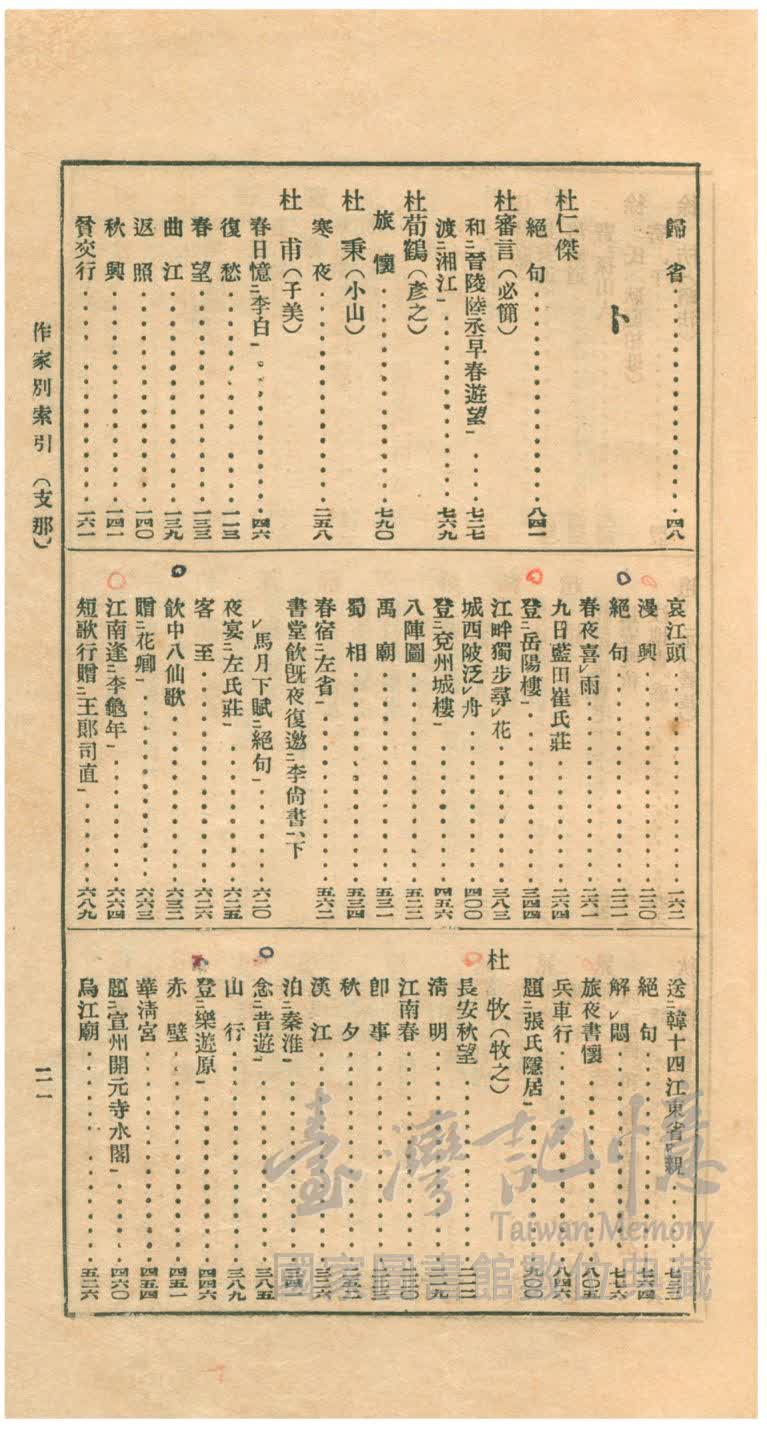 歸省 四八
ト
杜仁傑
絕句 八四一
杜審言（必簡）
和二晉陵陸丞早春遊望一 七二七
渡二湘江一 七六九
杜荀鶴（彥之）
旅懷 七九〇
杜秉（小山）
寒夜 二五八
杜甫（子美）
春日憶二李白一 四六
復愁 一一三
春望 一三三
曲江 一三九
返照 一四〇
秋興 一四一
貧交行 一六一
哀江頭 一六二
漫興 二二〇
絕句 二二一
春夜喜レ雨 二六一
九日藍田崔氏莊 二六四
登二岳陽樓一 三四四
江畔獨步尋レ花 三八三
城西陂泛レ舟 四〇〇
登二兗州城樓一 四五六
八陣圖 五二二
禹廟 五三一
蜀相 五三四
春宿二左省一 五六二
書堂飲既夜復邀二李尙書一、下
レ馬月下賦二絕句一 六二〇
夜宴二左氏莊一 六二五
客至 六二六
飮中八仙歌 六三二
贈二花卿一 六六三
江南逢二李龜年一 六六四
短歌行贈二王郞司直一 六八九
送二韓十四江東省レ親一 七三三
絕句 七六四
解レ悶 七七六
旅夜書懷 八〇五
兵車行 八四六
題二張氏隱居一 九〇〇
杜牧（牧之）
長安秋望
淸明
江南春
卽事
秋夕
漢江
泊二秦淮一
念二昔遊一 三八五
山行 三八九
登二樂遊原一 四四六
赤壁 四五一
華淸宮 四五四
題二宣州開元寺水閣一 四六〇
烏江廟 五二六
作家別索引（支那）
二一
臺灣記憶
Taiwan Memory
國家圖書館數位典藏